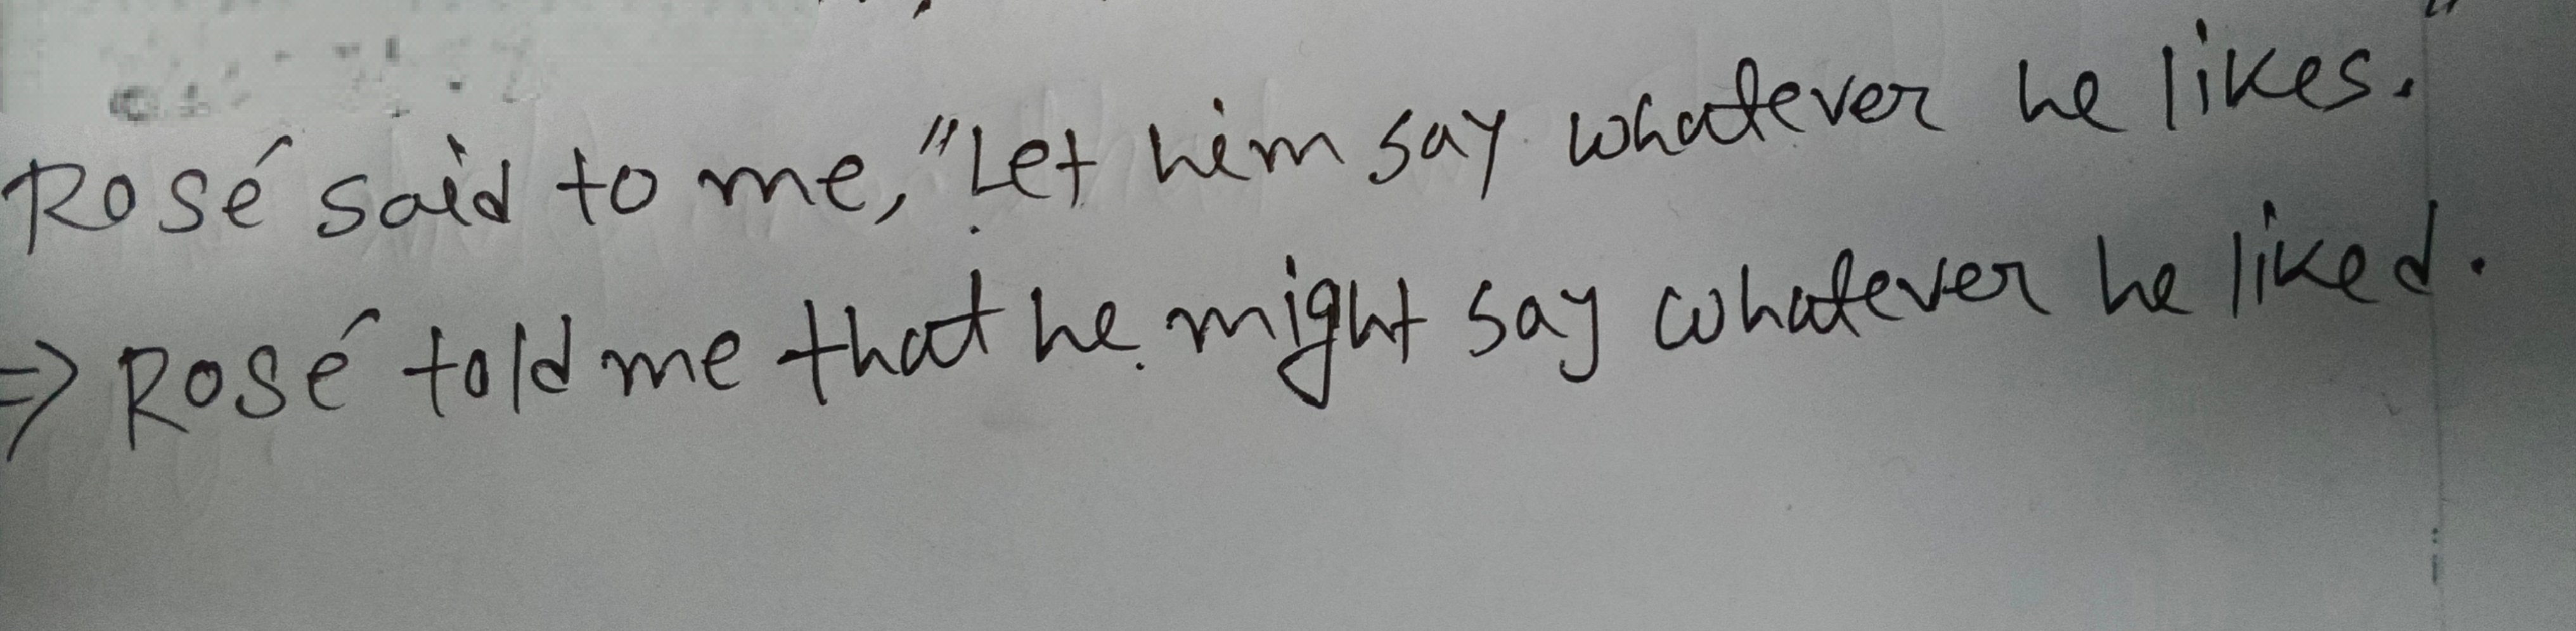 Rosé said to me, "Let him say whatever he likes."
⇒ Rosé told me that he might say whatever he liked.